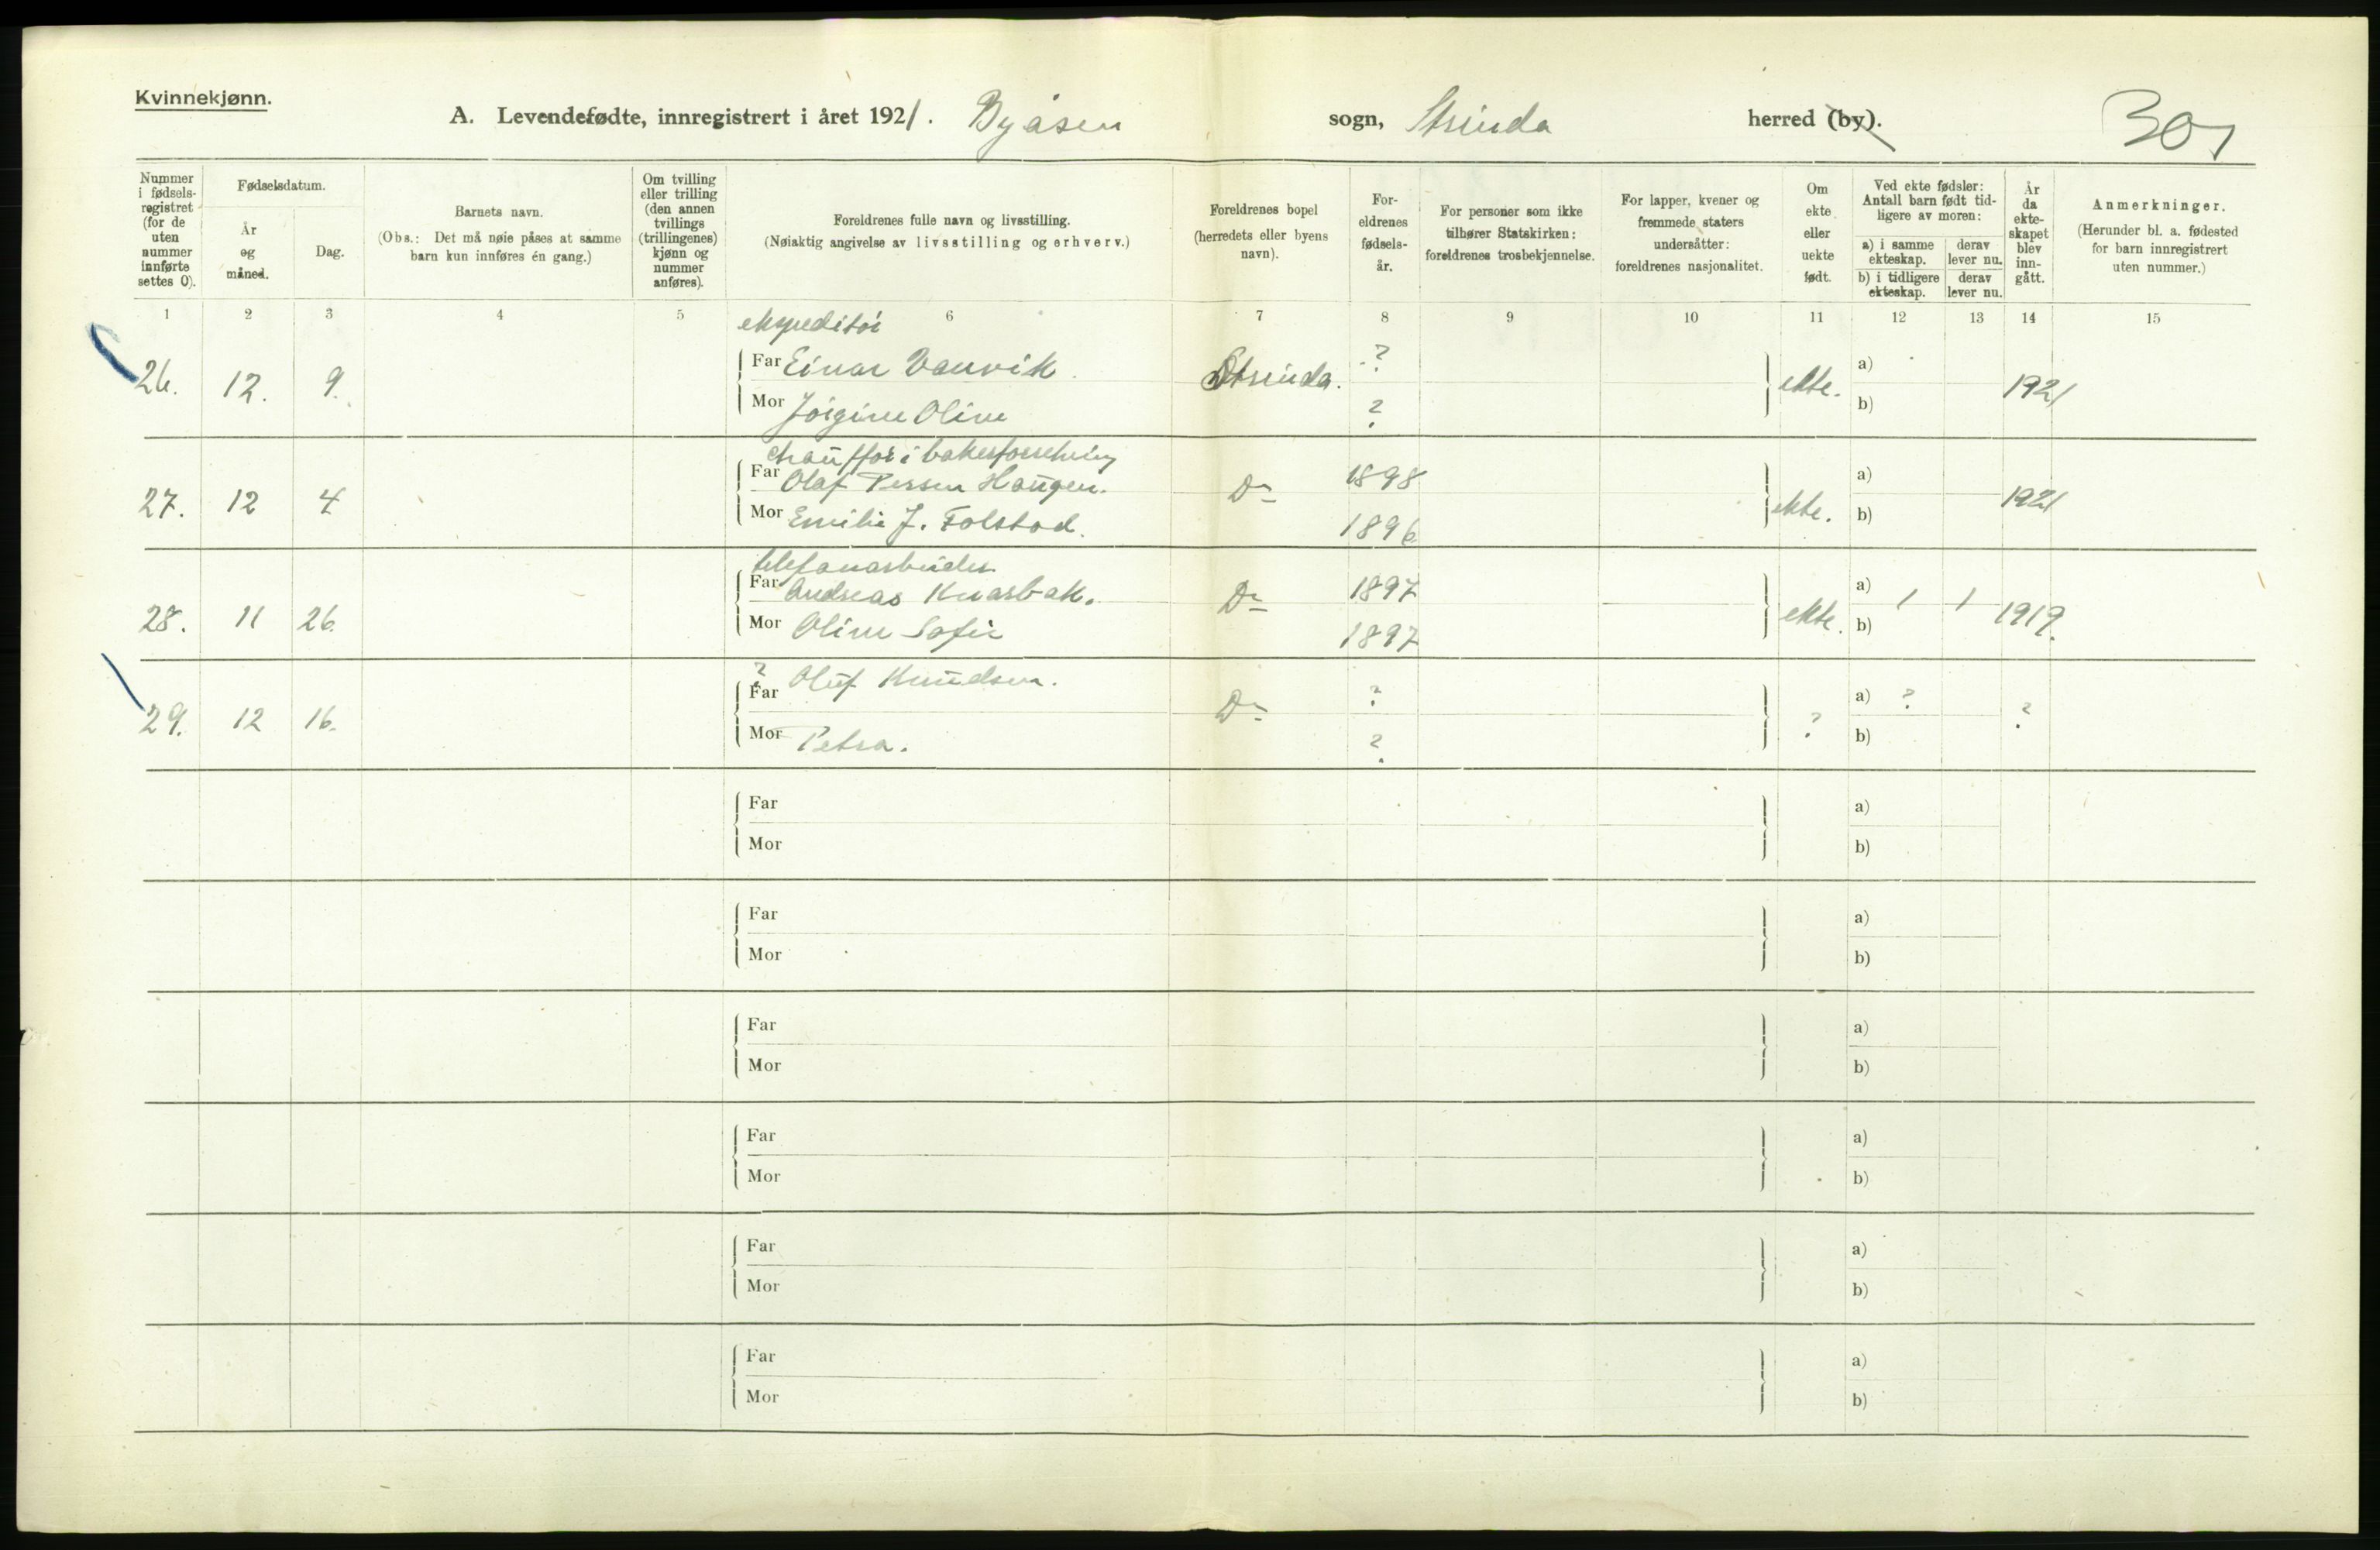 Kvinnekjønn.
A. Levendefødte, innregistrert i året 1921. Byåsen sogn, Strinda herred (by). 301
Nummer i fødselsregistret (for de uten nummer innførte settes 0).
Fødselsdatum.
År og måned.
Dag.
Barnets navn.
(Obs.: Det må nøie påses at samme barn kun innføres én gang.)
Om tvilling eller trilling (den annen tvillings (trillingenes) kjønn og nummer anføres).
Foreldrenes fulle navn og livsstilling.
(Nøiaktig angivelse av livsstilling og erhverv.)
Foreldrenes bopel (herredets eller byens navn).
Foreldrenes fødselsår.
For personer som ikke tilhører Statskirken: foreldrenes trosbekjennelse.
For lapper, kvener og fremmede staters undersåtter: foreldrenes nasjonalitet.
Om ekte eller uekte født.
Ved ekte fødsler: Antall barn født tidligere av moren:
a) i samme ekteskap.
derav lever nu.
b) i tidligere ekteskap.
derav lever nu.
År da ekteskapet blev inngått.
Anmerkninger.
(Herunder bl. a. fødested for barn innregistrert uten nummer.)
1 2 3 4 5 6 7 8 9 10 11 12 13 14 15
ekspeditör
26. 12. 9. Far Einar Vanvik. Strinda. ? ekte. a) 1921
Mor Jörgine Oline ? b)
chaufför i bakerforretning
27. 12 4 Far Olaf Persen Haugen. Do 1898 ekte. a) 1921
Mor Emilie J. Folstad. 1896 b)
telefonarbeider
28. 11 26. Far Andreas Kvasbak. Do 1897 ekte. a) 1 1 1919.
Mor Oline Sofie 1897 b)
?
29. 12 16. Far Oluf Knudsen. Do ? ? a) ? ?
Mor Petra. ? b)
Far a)
Mor b)
Far a)
Mor b)
Far a)
Mor b)
Far a)
Mor b)
Far a)
Mor b)
Far a)
Mor b)